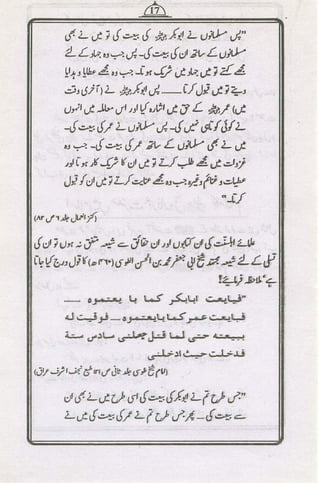 17
"پس مسلمانوں نے ابوبکرؓ کی بیعت کی تو میں نے بھی
مسلمانوں کے ساتھ ان کی بیعت کی۔ پس جب وہ جہاد کے لئے
مجھے کہتے تو میں جہاد میں شریک ہوتا۔ جب وہ مجھے عطایا و ہدایا
دیتے تو میں قبول کرتا ...... پس ابوبکرؓ نے (آخری وقت
میں) عمرؓ کے حق میں اشارہ کیا اور اس معاملہ میں انہوں
نے کوئی کوتاہی نہیں کی۔ پس مسلمانوں نے عمر کی بیعت کی۔
میں نے بھی مسلمانوں کے ساتھ عمر کی بیعت کی۔ جب وہ
غزوات میں مجھے طلب کرتے تو میں ان کا شریک کار ہوتا اور
عطیات و غنائم وغیرہ جب وہ مجھے عنایت کرتے تو میں ان کو قبول
کرتا۔"
(کنز العمال جلد ۶ ص ۸۲)
علمائے اہلسنّت کی ان کتابوں اور ان حقائق سے شیعہ متفق نہ ہوں تو ان کی
تسلی کے لئے شیعہ مجتہد شیخ ابی جعفر محمد بن الحسن الطوسی (۴۶۰ھ) کا قول درج کیا جاتا
ہے" ملاحظہ فرمائیے!
"فبایعت ابابکر کما بایعتموہ ـــ
فبایعت عمر کما بایعتموہ ـــ فوفیت لہ
ببیعتہ حتی لما قتل جعلنی سادس ستۃ
فدخلت حیث ادخلنی
(امام شیخ طوسی جلد ثانی ص ۱۲۱ طبع نجف اشرف عراق)
"جس طرح تم نے ابوبکر کی بیعت کی اسی طرح میں نے بھی ان
سے بیعت کی ... پھر جس طرح تم نے عمر کی بیعت کی میں نے